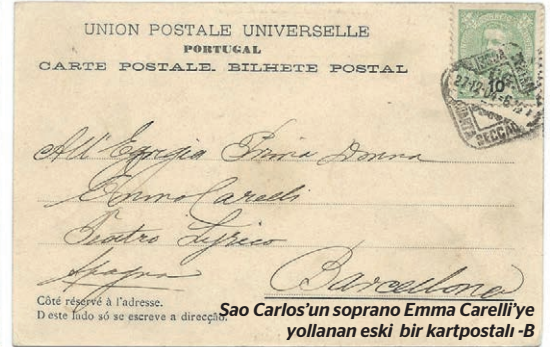 UNION POSTALE UNIVERSELLE
PORTUGAL
CARTE POSTALE. BILHETE POSTAL
10
QUARTA SECCÃO
All' Egregia Prima Donna
Emma Carelli
Teatro Lyrico
Spagna
Barcellona
Côté réservé à l'adresse.
Deste lado só se escreve a direcção.
Sao Carlos'un soprano Emma Carelli'ye
yollanan eski bir kartpostalı -B